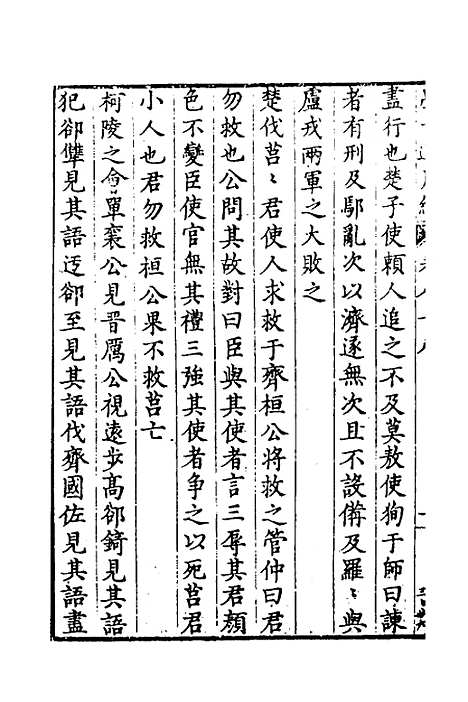 盡行也楚子使頼人追之不及莫敖使狥于師曰諫
者有刑及鄢亂次以濟遂無次且不設備及羅〻與
盧戎兩軍之大敗之
楚伐莒〻君使人求救于齊桓公將救之管仲曰君
勿救也公問其故對曰臣與其使者言三辱其君顔
色不變臣使官無其禮三強其使者爭之以死莒君
小人也君勿救桓公果不救莒亡
柯陵之會單襄公見晋厲公視遠步高郤錡見其語
犯郤犨見其語迂郤至見其語伐齊國佐見其語盡